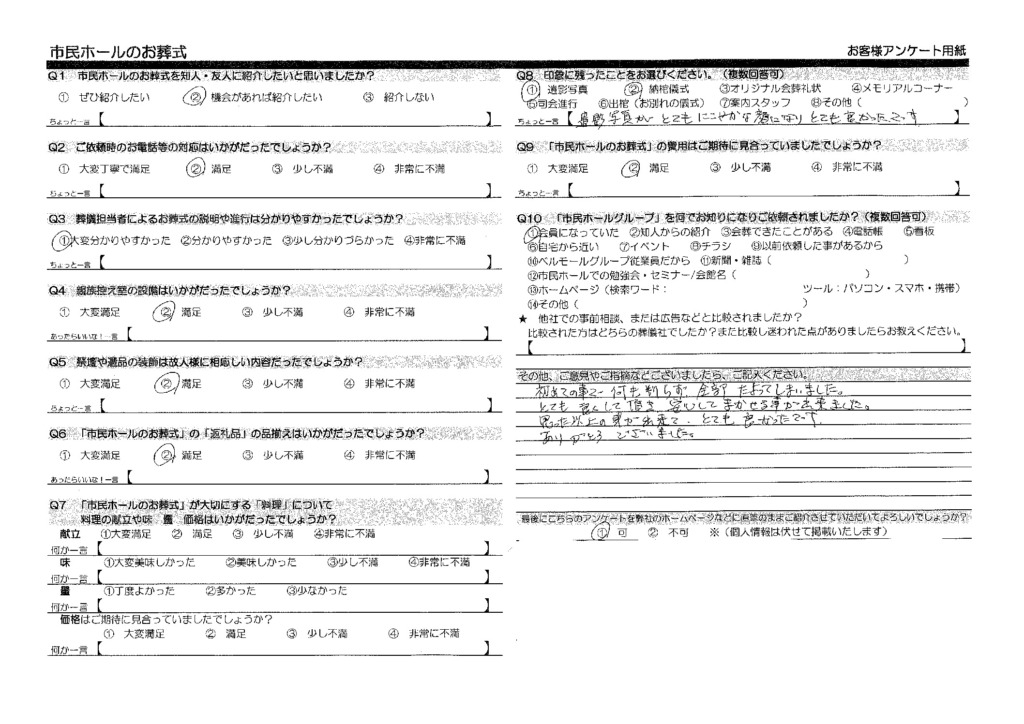 市民ホールのお葬式
お客様アンケート用紙
Q1 市民ホールのお葬式を知人・友人に紹介したいと思いましたか？
① ぜひ紹介したい ② 機会があれば紹介したい ③ 紹介しない
ちょっと一言【 】
Q2 ご依頼時のお電話等の対応はいかがだったでしょうか？
① 大変丁寧で満足 ② 満足 ③ 少し不満 ④ 非常に不満
ちょっと一言【 】
Q3 葬儀担当者によるお葬式の説明や進行は分かりやすかったでしょうか？
①大変分かりやすかった ②分かりやすかった ③少し分かりづらかった ④非常に不満
ちょっと一言【 】
Q4 親族控え室の設備はいかがだったでしょうか？
① 大変満足 ② 満足 ③ 少し不満 ④ 非常に不満
あったらいいな！一言【 】
Q5 祭壇や遺品の装飾は故人様に相応しい内容だったでしょうか？
① 大変満足 ② 満足 ③ 少し不満 ④ 非常に不満
ちょっと一言【 】
Q6 「市民ホールのお葬式」の「返礼品」の品揃えはいかがだったでしょうか？
① 大変満足 ② 満足 ③ 少し不満 ④ 非常に不満
あったらいいな！一言【 】
Q7 「市民ホールのお葬式」が大切にする「料理」について
料理の献立や味 量 価格はいかがだったでしょうか？
献立 ①大変満足 ② 満足 ③ 少し不満 ④非常に不満
何か一言【 】
味 ①大変美味しかった ②美味しかった ③少し不満 ④非常に不満
何か一言【 】
量 ①丁度よかった ②多かった ③少なかった
何か一言【 】
価格はご期待に見合っていましたでしょうか？
① 大変満足 ② 満足 ③ 少し不満 ④ 非常に不満
何か一言【 】
Q8 印象に残ったことをお選びください。（複数回答可）
① 遺影写真 ② 納棺儀式 ③オリジナル会葬礼状 ④メモリアルコーナー
⑤司会進行 ⑥出棺（お別れの儀式） ⑦案内スタッフ ⑧その他（ ）
ちょっと一言【遺影写真がとてもにこやかな顔になりとても良かったです】
Q9 「市民ホールのお葬式」の費用はご期待に見合っていましたでしょうか？
① 大変満足 ② 満足 ③ 少し不満 ④ 非常に不満
ちょっと一言【 】
Q10 「市民ホールグループ」を何でお知りになりご依頼されましたか？（複数回答可）
①会員になっていた ②知人からの紹介 ③会葬できたことがある ④電話帳 ⑤看板
⑥自宅から近い ⑦イベント ⑧チラシ ⑨以前依頼した事があるから
⑩ベルモールグループ従業員だから ⑪新聞・雑誌（ ）
⑫市民ホールでの勉強会・セミナー/会館名（ ）
⑬ホームページ（検索ワード： ツール：パソコン・スマホ・携帯）
⑭その他（ ）
★ 他社での事前相談、または広告などと比較されましたか？
比較された方はどちらの葬儀社でしたか？また比較し迷われた点がありましたらお教えください。
【 】
その他、ご意見やご指摘などございましたら、ご記入ください。
初めての事で何も判らず全部たよってしまいました。
とても良くして頂き安心してまかせる事が出来ました。
思った以上の事が出来て、とても良かったです
ありがとうございました。
最後にこちらのアンケートを弊社のホームページなどに直筆のままご紹介させていただいてよろしいでしょうか？
① 可 ② 不可 ※（個人情報は伏せて掲載いたします）